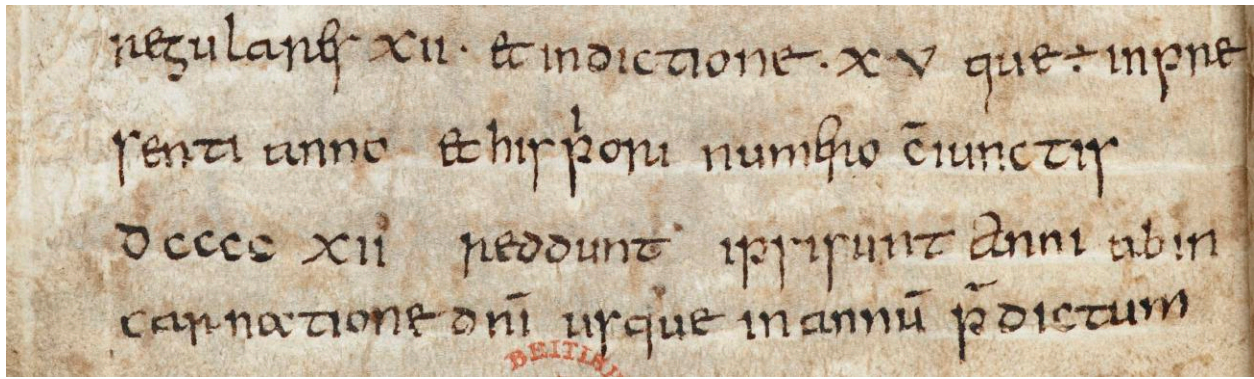 regulares xii · et indictione · xv que ÷ in pre
senti anno et his p̍ori numero c̄iunctis
dcccc xii reddunt ipsi sunt Anni ab in
carnatione dn̄i usque in annū p̄dictum